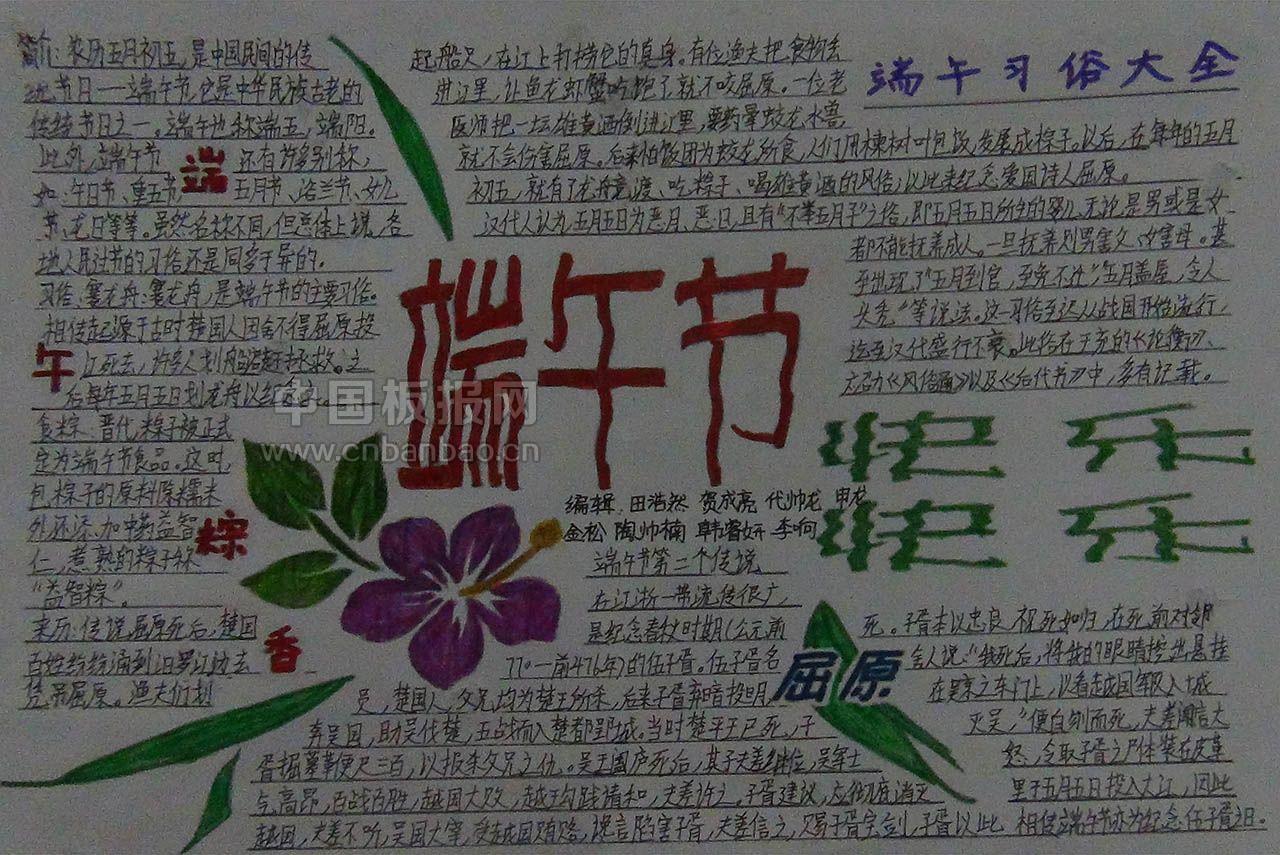 简介：农历五月初五，是中国民间的传
统节日——端午节，它是中华民族古老的
传统节日之一。端午也称端五，端阳。
此外，端午节还有许多别称，
如：午日节、重五节、五月节、浴兰节、女儿
节，龙日等等。虽然名称不同，但总体上说，各
地人民过节的习俗还是同多于异的。
习俗：赛龙舟：赛龙舟，是端午节的主要习俗。
相传起源于古时楚国人因舍不得屈原投
江死去，许多人划船追赶拯救。之
后每年五月五日划龙舟以纪念之。
食粽：晋代，粽子被正式
定为端午节食品。这时，
包粽子的原料除糯米
外，还添加中药益智
仁，煮熟的粽子称
“益智粽”。
来历：传说屈原死后，楚国
百姓纷纷涌到汨罗江边去
凭吊屈原。渔夫们划
端
午
粽
香
起船只，在江上打捞他的真身。有位渔夫把食物丢
进江里，让鱼龙虾蟹吃饱了就不咬屈原。一位老
医师把一坛雄黄酒倒进江里，要药晕蛟龙水兽，
就不会伤害屈原。后来怕饭团为蛟龙所食，人们用楝树叶包饭，发展成棕子。以后，在每年的五月
初五，就有了龙舟竞渡、吃粽子、喝雄黄酒的风俗；以此来纪念爱国诗人屈原。
汉代人认为五月五日为恶月、恶日，且有“不举五月子”之俗，即五月五日所生的婴儿无论是男或是女
都不能抚养成人。一旦抚养则男害父、女害母。甚
至出现了“五月到官，至免不迁”“五月盖屋，令人
头秃”等说法。这一习俗至迟从战国开始流行，
迄至汉代盛行不衰。此俗在王充的《论衡》、
应劭《风俗通》以及《后代书》中，多有记载。
端午习俗大全
端午节
中国板报网
www.cnbanbao.cn
快乐
快乐
编辑：田浩然 贺成亮 代帅龙 申龙
金松 陶帅楠 韩睿妍 李响
端午节第二个传说
在江浙一带流传很广，
是纪念春秋时期（公元前
770—前476年）的伍子胥。伍子胥名
员，楚国人，父兄均为楚王所杀，后来子胥弃暗投明，
奔吴国，助吴伐楚，五战而入楚都郢城。当时楚平王已死，子
胥掘墓鞭尸三百，以报杀父兄之仇。吴王阖庐死后，其子夫差继位，吴军士
气高昂，百战百胜，越国大败，越王勾践请和，夫差许之。子胥建议，应彻底消灭
越国，夫差不听，吴国大宰，受越国贿赂，谗言陷害子胥，夫差信之，赐子胥宝剑，子胥以此
屈原
死。子胥本以忠良，视死如归，在死前对邻
舍人说：“我死后，将我的眼睛挖出悬挂
在吴京之东门上，以看越国军队入城
灭吴”，便自刎而死，夫差闻言大
怒，令取子胥之尸体装在皮革
里于五月五日投入大江，因此
相传端午节亦为纪念伍子胥之日。